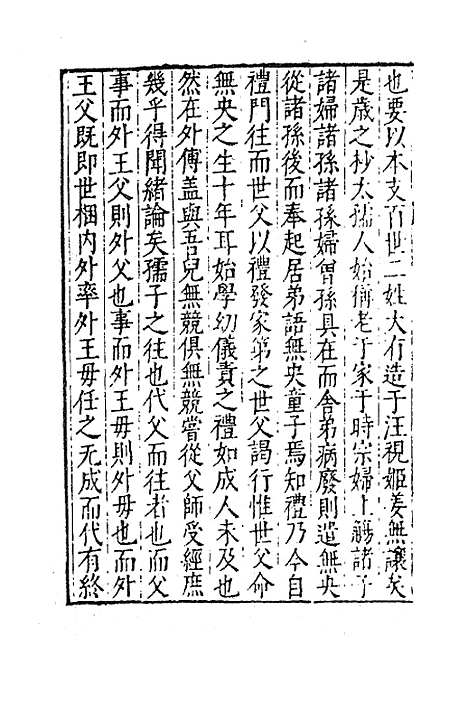 也要以本支百世二姓大有造于汪視姬姜無讓矣
是歳之杪太孺人始衎老于家于時宗婦上觴諸子
諸婦諸孫諸孫婦曾孫具在而舍弟病廢則遣無央
從諸孫後而奉起居弟語無央童子焉知禮乃今自
禮門往而世父以禮發家第之世父謁行惟世父命
無央之生十年耳始學幼儀責之禮如成人未及也
然在外傅盖與吾兒無競俱無競嘗從父師受經庶
幾乎得聞緒論矣孺子之往也代父而往者也而父
事而外王父則外父也事而外王毋則外毋也而外
王父既即世梱内外率外王毋任之无成而代有終